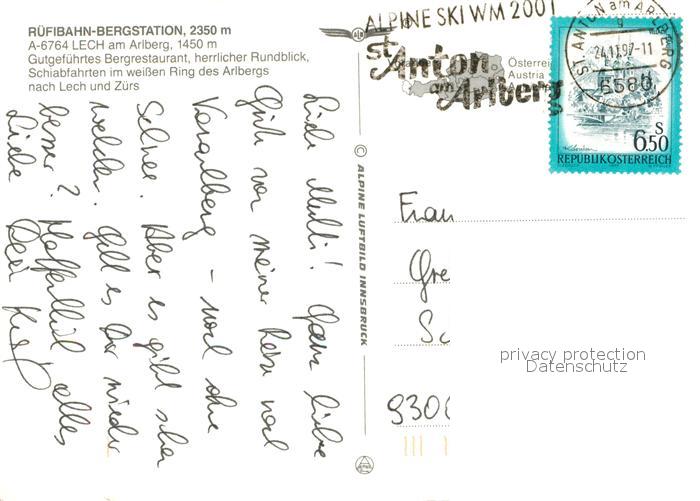 RÜFIBAHN-BERGSTATION, 2350 m
A-6764 LECH am Arlberg, 1450 m
Gutgeführtes Bergrestaurant, herrlicher Rundblick,
Schiabfahrten im weißen Ring des Arlbergs
nach Lech und Zürs
ALPINE SKI WM 2001
St. Anton
am Arlberg
Österrei
Austria
ST. ANTON am ARLBERG
24.11.97-11
6580
S
6.50
REPUBLIK ÖSTERREICH
© ALPINE LUFTBILD INNSBRUCK
Liebe Mutti! Ganz liebe
Grüße von meiner Reise nach
Vorarlberg – noch ohne
Schnee. Aber es gibt schon
welchen. Geht es Dir wieder
besser? Hoffentlich alles
Liebe Dein
Frau
Gre
Sc
930
privacy protection
Datenschutz